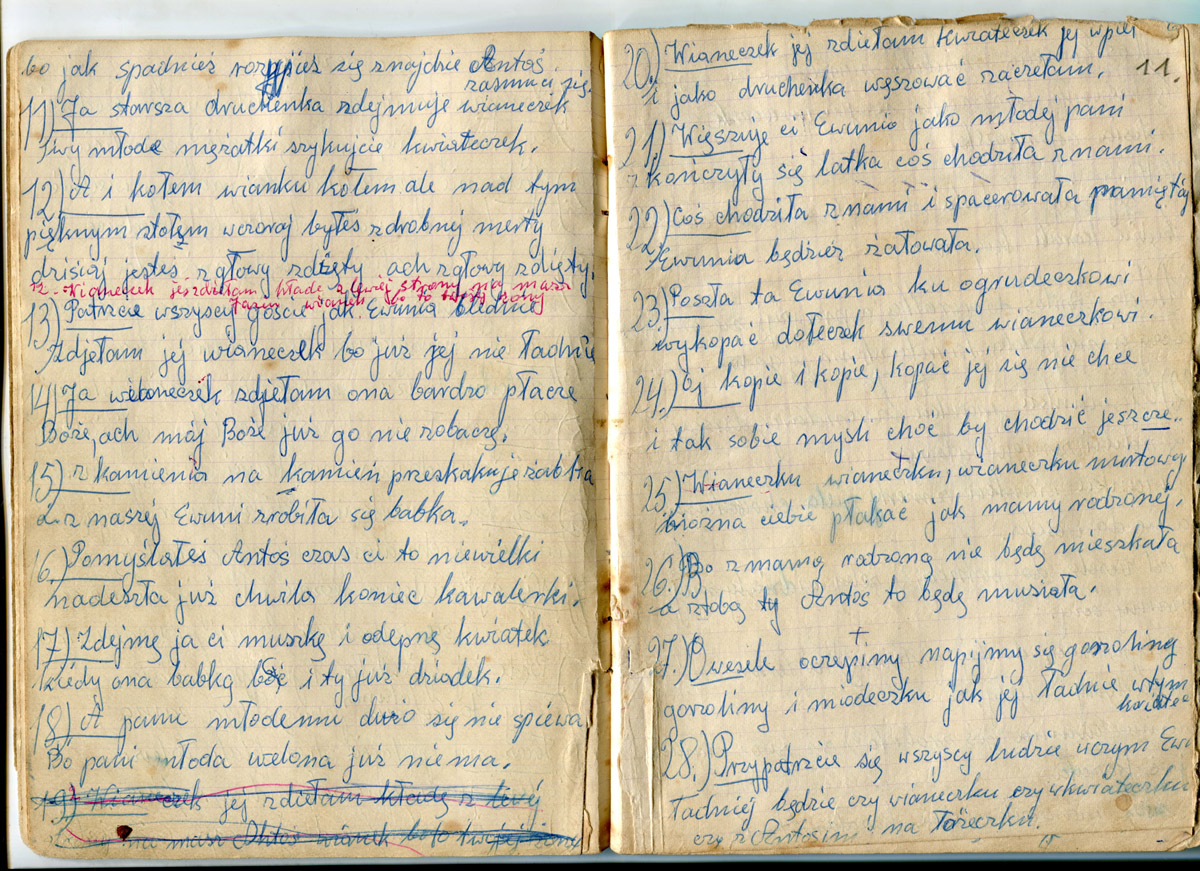 bo jak spadnież się znajdzie Antoś
zasmuci się.
11) Ja starsza druchenka zdejmuje wianeczek
a wy młode mężatki szykujcie kwiateczek.
12) A i kołem wianku kołem ale nad tym
pięknym stołęm wczoraj byłeś z drobnij merty
dzisiaj jesteś z głowy zdięty ach z głowy zdięty.
Wianeczek jej zdiełam kładę z lewej strony na masz
Jasiu wianek bo to twojej żony
13) Patrzcie wszyscy goście jak Ewunia blednie
Zdjełam jej wianeczek bo już jej nie ładnie
14) Ja weloneczek zdjełam ona bardzo płacze
Boże, ach mój Boże już go nie zobaczę.
15) z kamienia na kamień przeskakuje żabka
a z naszej Ewuni zrobiła się babka.
16) Pomyślałeś Antoś czas ci to niewielki
nadeszła już chwila koniec kawalerki.
17) Zdejmę ja ci muszkę i odepnę kwiatek
kiedy ona babką być i ty już dziadek.
18) A panu młodemu dużo się nie śpiewa
Bo pani młoda welona już niema.
19) Wianeczek jej zdiełam kładę z lewej
na masz Antoś wianek bo to twojej żony
11.
20.) Wianeczek jej zdiełam kwiateczek jej wpieł
i jako druchenka węszować zaczełam.
21) Więszuje ci Ewunia jako młodej pani
zkończyły się latka coś chodziła z nami.
22) Coś chodziła z nami i spacerowała pamiętaj
Ewunia będziesz żałowała.
23.) Poszła ta Ewunia ku ogrudeczkowi
wykopać dołeczek swemu wianeczkowi.
24.) Oj kopie i kopie, kopać jej się nie chce
i tak sobie myśli choć by chodzić jeszcze..
25) Wianeczku wianeczku, wianeczku mirtowy
można ciebie płakać jak mamy rodzonej.
26.) Bo z mamą rodzoną nie będę mieszkała
a z tobą ty Antoś to będę musiała.
27.) Owesele oczepiny napijmy się gorzoliny
gorzoliny i miodeczku jak jej ładnie wtym
kwiatec
28.) Przypatrzcie się wszyscy ludzie wczym Ewu
ładniej będzie czy wianeczku czy wkwiateczku
czy z Antosim na łożeczku.